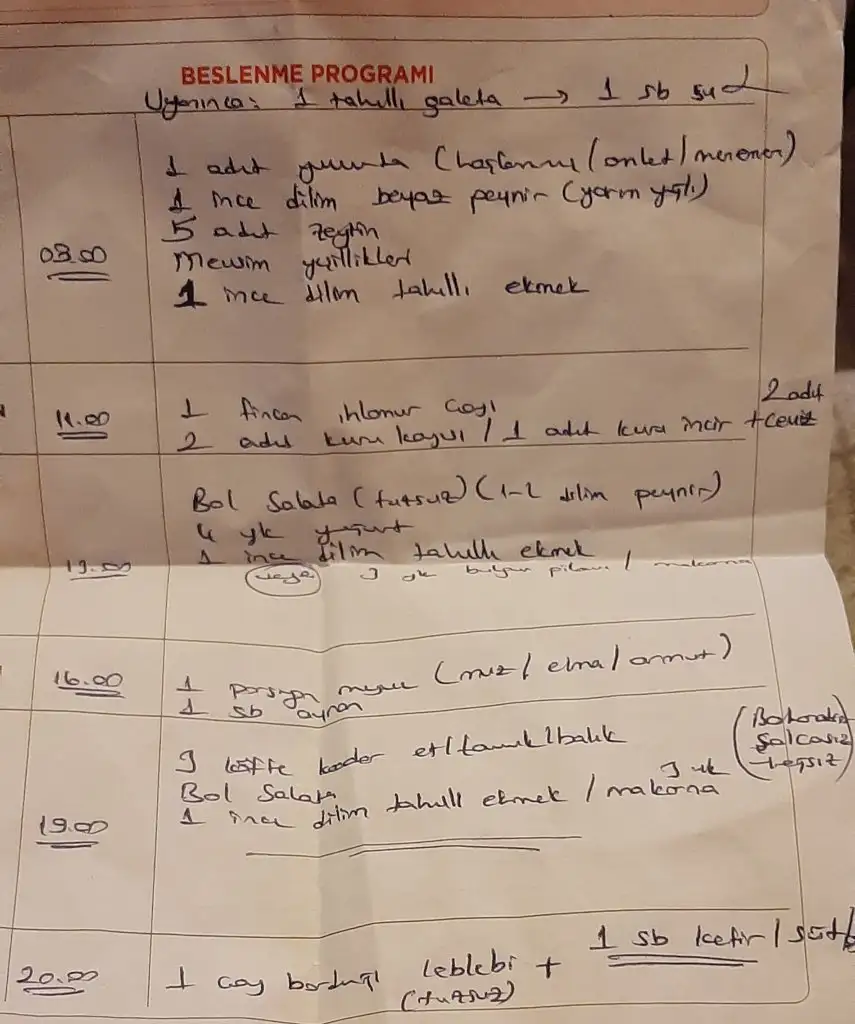 BESLENME PROGRAMI
Uyanınca: 1 tahıllı galeta → 1 sb su
08.00
1 adet yumurta (haşlanmış/omlet/menemen)
1 ince dilim beyaz peynir (yarım yağlı)
5 adet zeytin
Mevsim yeşillikleri
1 ince dilim tahıllı ekmek
11.00
1 fincan ıhlamur çayı
2 adet kuru kayısı / 1 adet kuru incir + 2 adet ceviz
13.00
Bol Salata (tuzsuz) (1-2 dilim peynir)
4 yk yoğurt
1 ince dilim tahıllı ekmek
veya 3 yk bulgur pilavı / makarna
16.00
1 porsiyon meyve (muz/elma/armut)
1 sb ayran
19.00
3 köfte kadar et/tavuk/balık
Bol Salata
1 ince dilim tahıllı ekmek / 3 yk makarna
(
salçasız
)
20.00
1 çay bardağı leblebi + 1 sb kefir / süt
(tuzsuz)